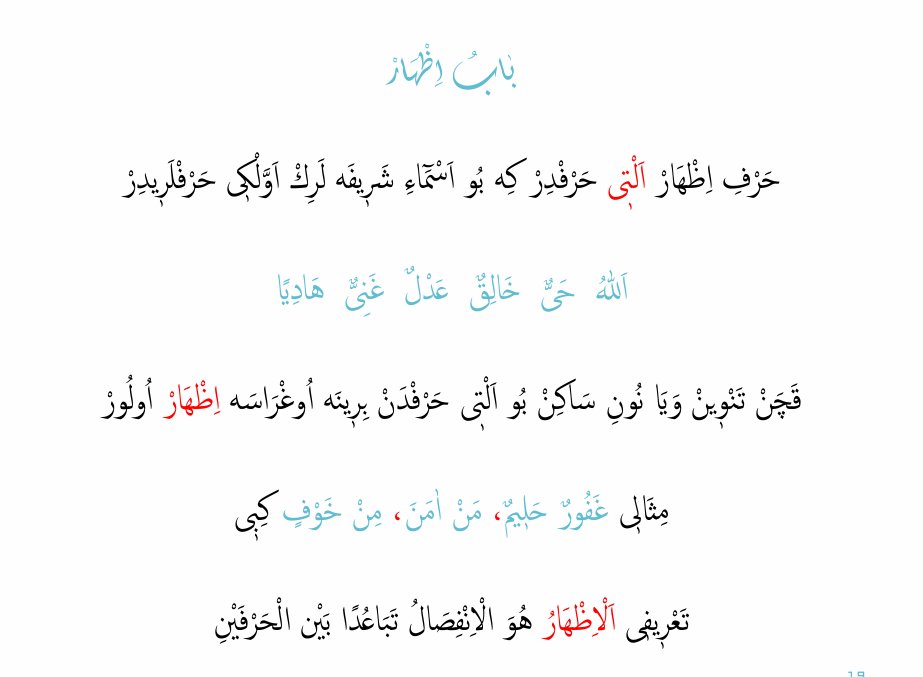 بَابُ اِظْهَارْ
حَرْفِ اِظْهَارْ اَلْتٖى حَرْفْدِرْ كِه بُو اَسْمَٓاءِ شَرٖيفَه لَرِكْ اَوَّلْكٖى حَرْفْلَرٖيدِرْ
اَللّٰهُ حَىٌّ خَالِقٌ عَدْلٌ غَنِىٌّ هَادِيًا
قَچَنْ تَنْوٖينْ وَيَا نُونِ سَاكِنْ بُو اَلْتٖى حَرْفْدَنْ بِرٖينَه اُوغْرَاسَه اِظْهَارْ اُولُورْ
مِثَالٖى غَفُورٌ حَلٖيمٌ، مَنْ اٰمَنَ، مِنْ خَوْفٍ كِبٖى
تَعْرٖيفٖى اَلْاِظْهَارُ هُوَ الْاِنْفِصَالُ تَبَاعُدًا بَيْن الْحَرْفَيْنِ